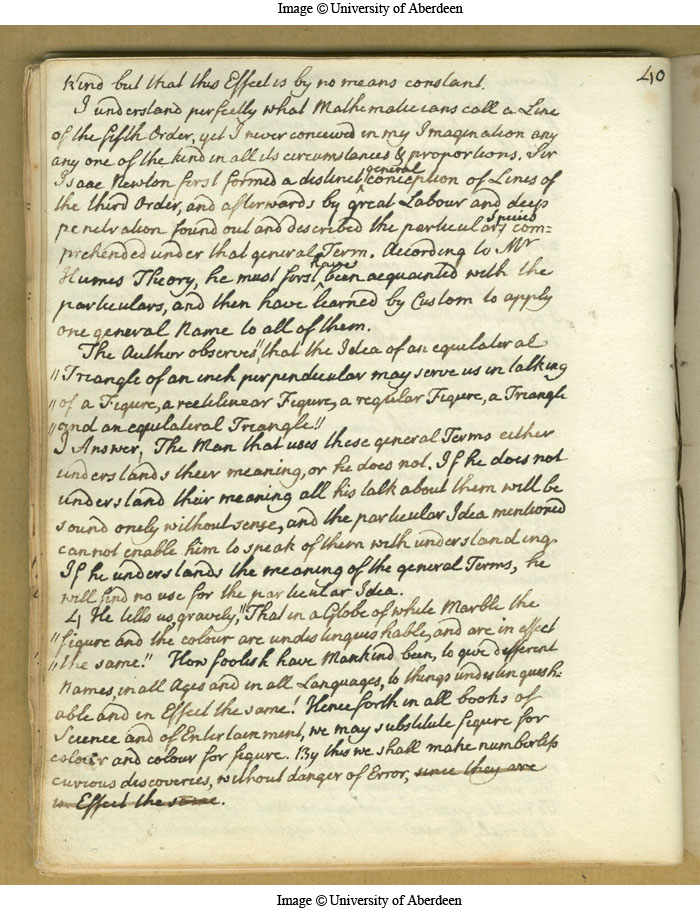 Image © University of Aberdeen
40
kind but that this Effect is by no means constant.
I understand perfectly what Mathematicians call a Line
of the fifth Order, yet I never conceived in my Imagination any
any one of the kind in all its circumstances & proportions. Sir
Isaac Newton first formed a distinct general conception of Lines of
the third Order, and afterwards by great Labour and deep
penetration found out and described the particular Species com=
prehended under that general Term. According to Mr
Humes Theory, he must first have been acquainted with the
particulars, and then have learned by Custom to apply
one general Name to all of them.
The Author observes "that the Idea of an equilateral
"Triangle of an inch perpendicular may serve us in talking
"of a Figure, a rectelinear Figure, a regular Figure, a Triangle
"and an equilateral Triangle"
I Answer, The Man that uses these general Terms either
understands their meaning, or he does not. If he does not
understand their meaning all his talk about them will be
sound onely without sense, and the particular Idea mentioned
cannot enable him to speak of them with understanding.
If he understands the meaning of the general Terms, he
will find no use for the particular Idea.
4 He tells us gravely, "That in a Globe of white Marble the
"figure and the colour are undistinguishable, and are in effect
"the same." How foolish have Mankind been, to give different
Names, in all Ages and in all Languages, to things undistinguish-
able and in Effect the same! Henceforth in all books of
Science and of Entertainment, we may substitute figure for
colour and colour for figure. By this we shall make numberless
curious discoveries, without danger of Error, since they are
in Effect the same.
Image © University of Aberdeen